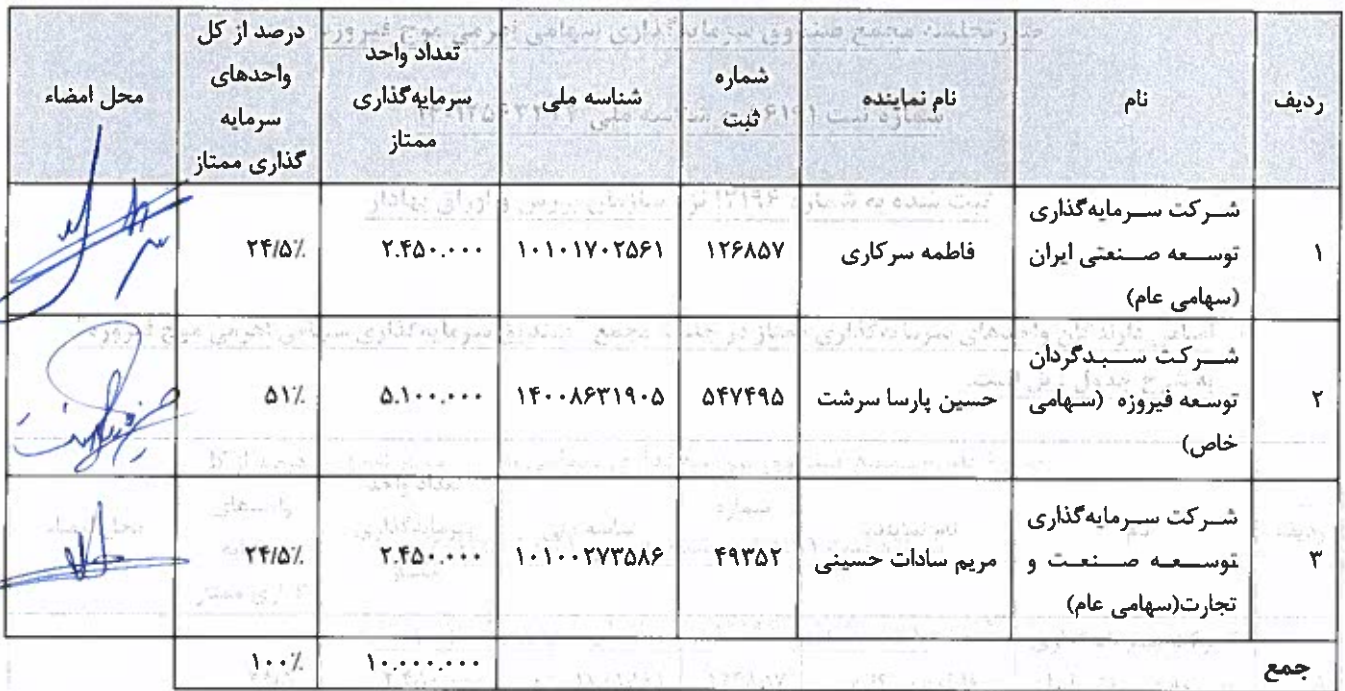 ردیف
نام
نام نماینده
شماره
ثبت
شناسه ملی
تعداد واحد
سرمایه‌گذاری
ممتاز
درصد از کل
واحدهای
سرمایه
گذاری ممتاز
محل امضاء
۱
شرکت سرمایه‌گذاری
توسعه صنعتی ایران
(سهامی عام)
فاطمه سرکاری
۱۲۶۸۵۷
۱۰۱۰۱۷۰۲۵۶۱
۲.۴۵۰.۰۰۰
۲۴/۵٪
۲
شرکت سبدگردان
توسعه فیروزه (سهامی
خاص)
حسین پارسا سرشت
۵۴۷۴۹۵
۱۴۰۰۸۶۳۱۹۰۵
۵.۱۰۰.۰۰۰
۵۱٪
۳
شرکت سرمایه‌گذاری
توسعه صنعت و
تجارت(سهامی عام)
مریم سادات حسینی
۴۹۳۵۲
۱۰۱۰۰۲۷۳۵۸۶
۲.۴۵۰.۰۰۰
۲۴/۵٪
جمع
۱۰.۰۰۰.۰۰۰
۱۰۰٪